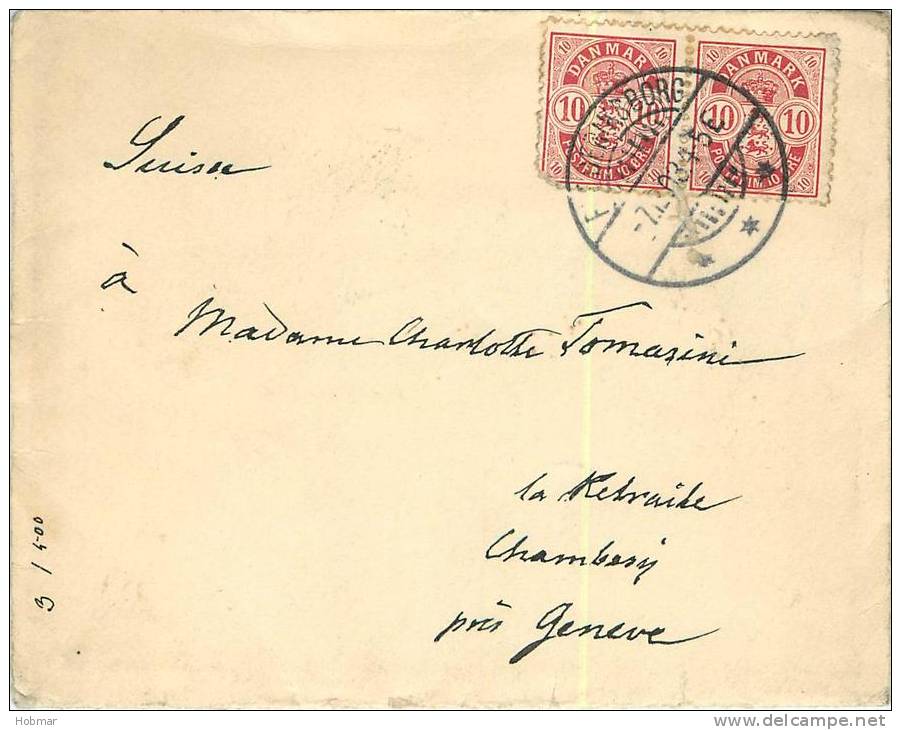 10 DANMARK 10
10 10
POSTFRIM. 10 ØRE
10 10
10 DANMARK 10
10 10
POSTFRIM. 10 ØRE
10 10
Suisse
à
Madame Charlotte Tomasini
la Retraite
Chambesy
près Geneve
3 / 400
Hobmar
http://www.delcampe.net